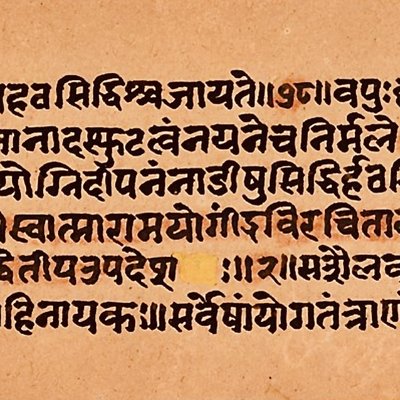 हवसिद्धिश्चजायते॥७८॥वपुः
नादस्फुटत्वंनयनेचनिर्मले
योग्निदीपनंनाडीषुसिद्धिर्हव
स्वात्मारामयोगींद्रविरचिता
द्वितीयउपदेशः॥२॥सशैलव
हिनायकः॥सर्वेषांयोगतंत्राण